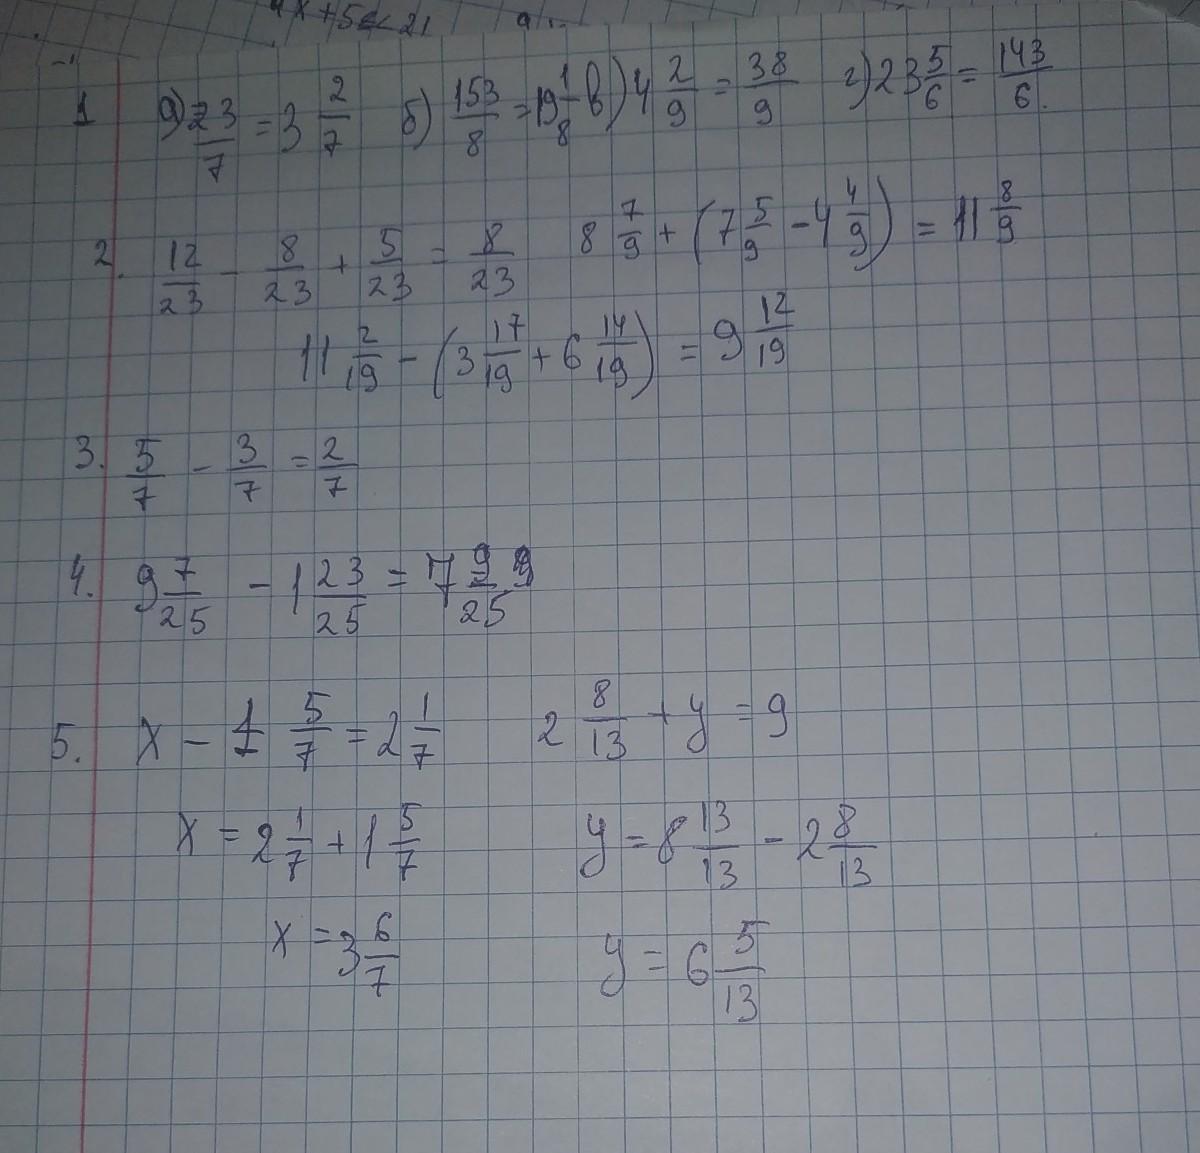 4x+5<21
1 а) 23/7 = 3 2/7 б) 153/8 = 19 1/8 в) 4 2/9 = 38/9 г) 23 5/6 = 143/6.
2. 12/23 - 8/23 + 5/23 = 8/23 8 7/9 + (7 5/9 - 4 4/9) = 11 8/9
11 2/19 - (3 17/19 + 6 14/19) = 9 12/19
3. 5/7 - 3/7 = 2/7
4. 9 7/25 - 1 23/25 = 7 9/25
5. x - 1 5/7 = 2 1/7 2 8/13 + y = 9
x = 2 1/7 + 1 5/7 y = 8 13/13 - 2 8/13
x = 3 6/7 y = 6 5/13